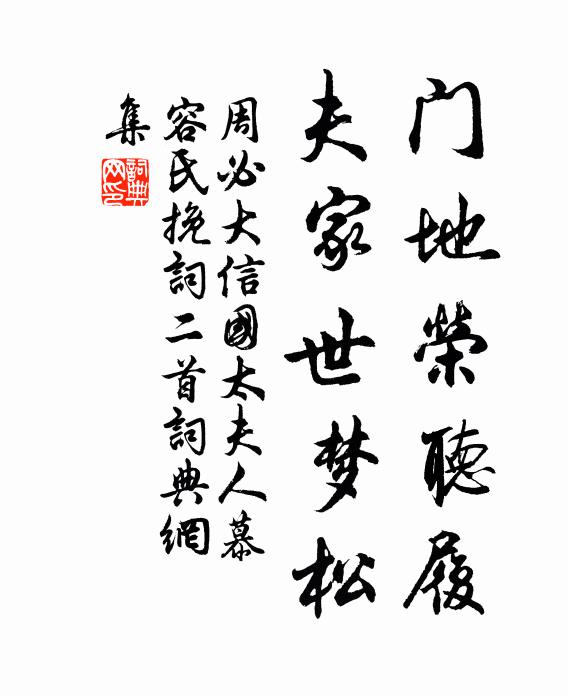 门地榮聽履
夫家世梦松
周必大信國太夫人慕
容氏挽詞二首詞典網
集
詞典网印